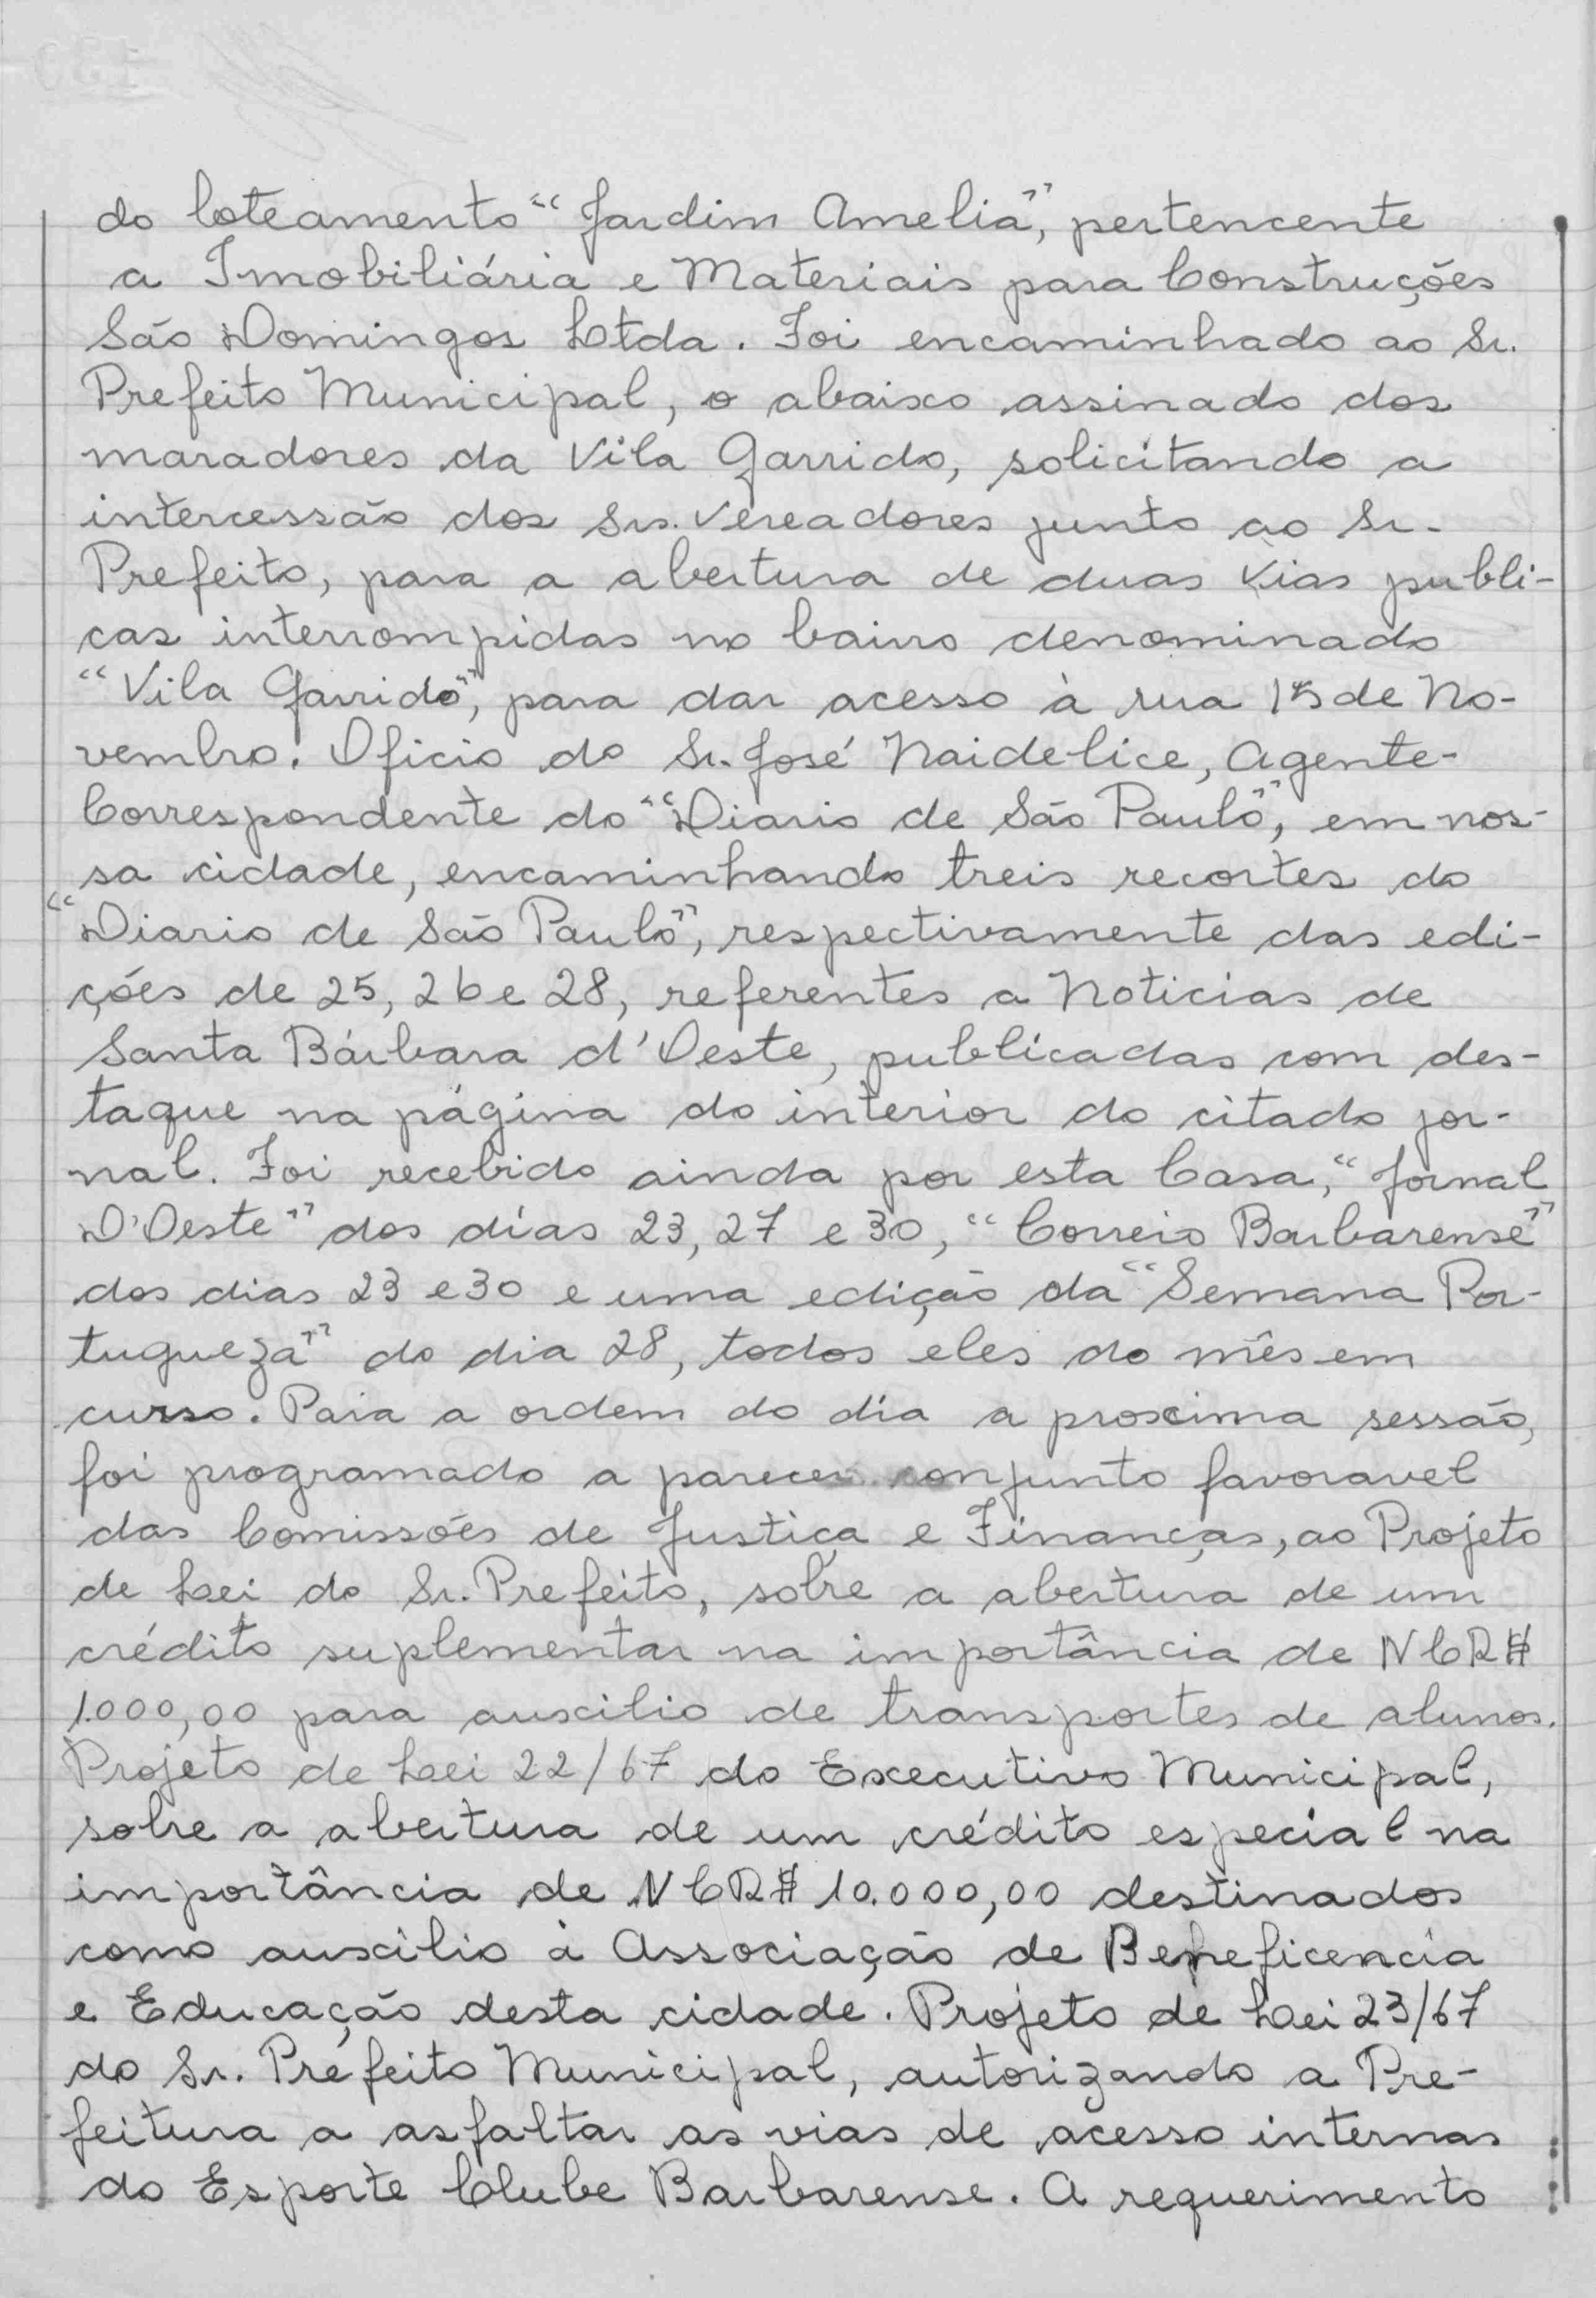 do loteamento "Jardim Amelia", pertencente
a Imobiliária e Materiais para Construções
São Domingos Ltda. Foi encaminhado ao Sr.
Prefeito Municipal, o abaixo assinado dos
maradores da Vila Garrido, solicitando a
intercessão dos Srs. Vereadores junto ao Sr.
Prefeito, para a abertura de duas Vias publi-
cas interrompidas no bairro denominado
"Vila Garrido", para dar acesso à rua 15 de No-
vembro. Oficio do Sr. José Naidelice, Agente-
Correspondente do "Diario de São Paulo", em nos-
sa cidade, encaminhando treis recortes do
"Diario de São Paulo", respectivamente das edi-
ções de 25, 26 e 28, referentes a Noticias de
Santa Bárbara d'Oeste, publicadas com des-
taque na página do interior do citado jor-
nal. Foi recebido ainda por esta Casa, "Jornal
D'Oeste" dos dias 23, 27 e 30, "Correio Barbarense"
dos dias 23 e 30 e uma edição da "Semana Por-
tugueza" do dia 28, todos eles do mês em
curso. Para a ordem do dia a proxima sessão,
foi programado a parecer conjunto favoravel
das Comissões de Justiça e Finanças, ao Projeto
de Lei do Sr. Prefeito, sobre a abertura de um
crédito suplementar na importância de NCR$
1.000,00 para auxilio de transportes de alunos.
Projeto de Lei 22/67 do Executivo Municipal,
sobre a abertura de um crédito especial na
importância de NCR$ 10.000,00 destinados
como auxilio à Associação de Beneficencia
e Educação desta cidade. Projeto de Lei 23/67
do Sr. Prefeito Municipal, autorizando a Pre-
feitura a asfaltar as vias de acesso internas
do Esporte Clube Barbarense. A requerimento